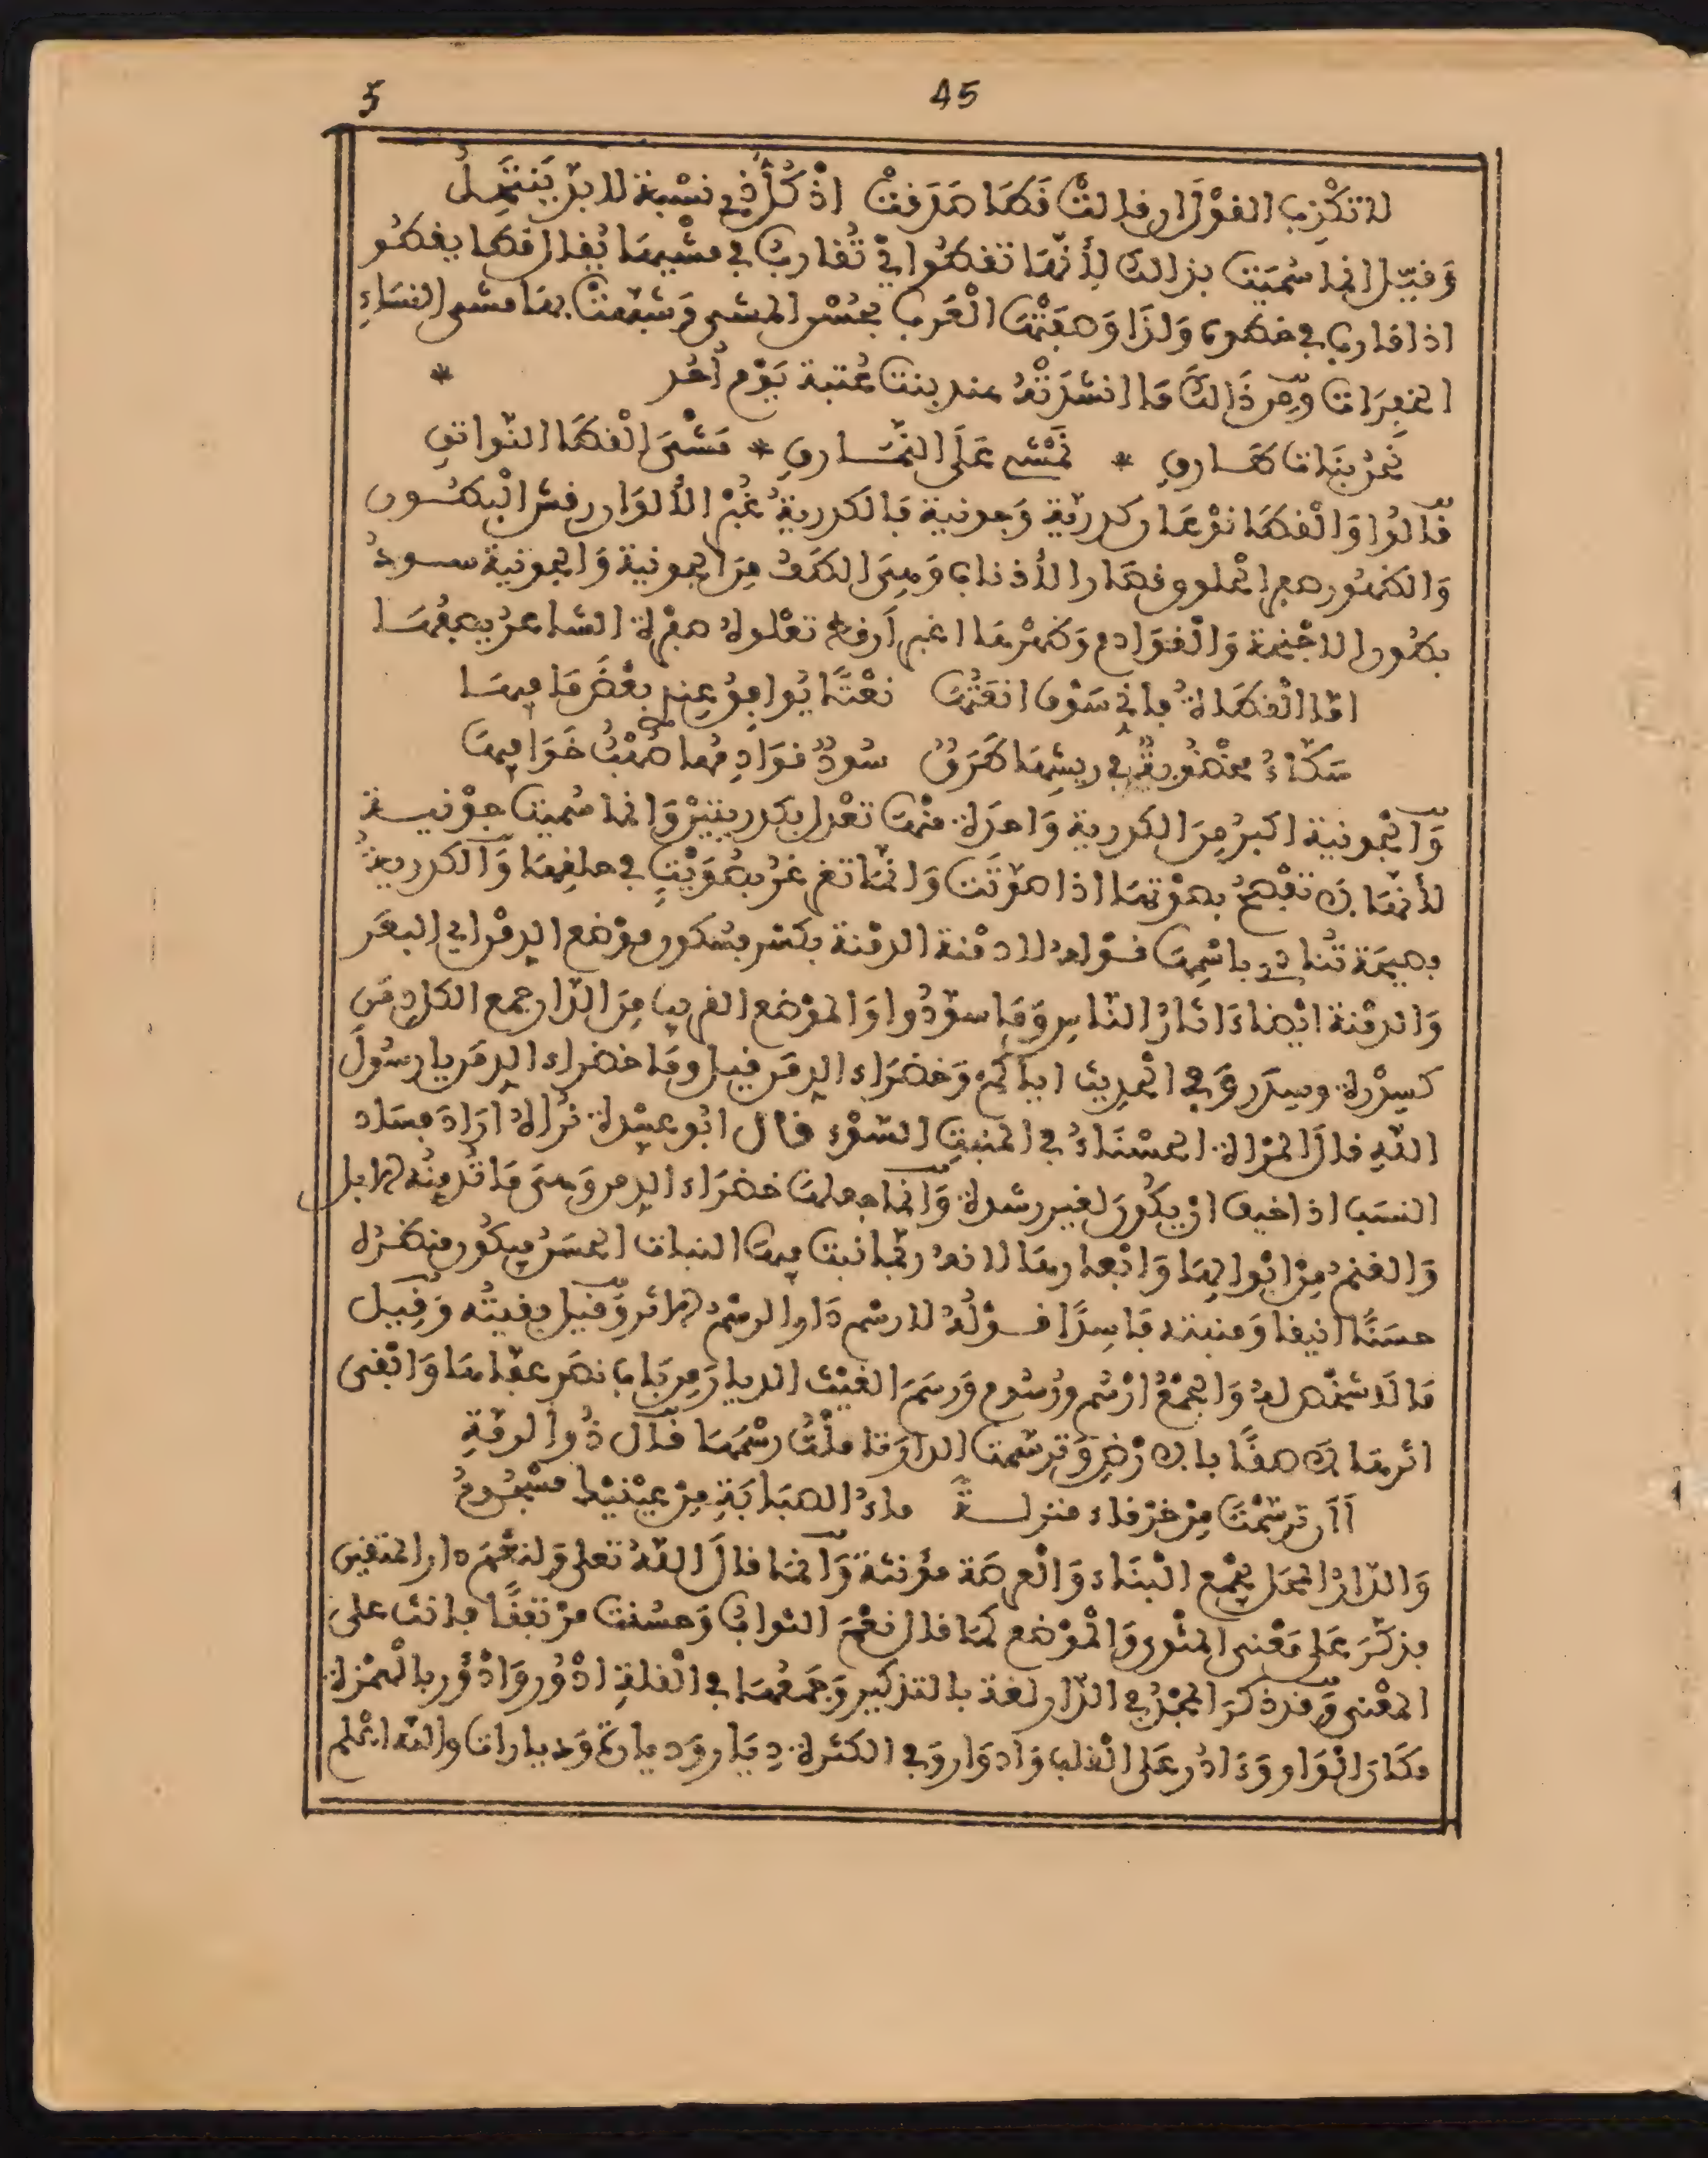 5 45
لا تكذب القول ان قالت قَطًا صَدَقتْ اذ كُلُّ ذِي نسْبة لا بدّ يَنتَحِلُ
وَقيل انما سُميَت بذالك لِأنّهَا تقطُوا ايْ تُقارِبُ في مشْيهَا يُقال قطا يقطُو
اذا قارب في خطوه وَلذَا وَصفَتْهَا الْعَرب بحُسْن المشي وَشبّهتْ بهَا مشي النسَاءِ
الخفِرَات وَمِن ذَالكَ مَا انشدَتْهُ هند بنت عُتبة يَوْم أُحُد *
نَحْنُ بَنَات طَارِقِ * نَمْشي عَلَى النَّمَارِقِ * مَشْيَ الْقطَا النّواتقِ
قالوا وَالْقطَا نوْعَان كدريّة وَجونية فَالكدريةُ غُبْرُ الْألوَان رقش الْبطُون
وَالظهُور صفر الحلوق قصَار الأذناب وَهِيَ الطَف مِنَ الجونية وَالجونية سود
بطون الاجْنحة وَالْقوَادم وَظهْرهَا اغبر أرقط تعْلوهُ صفرة الشاعرُ يصِفُهَا
امّا الْقطَاةُ فاني سَوْف انعَتُهَا نعْتًا يُوافِقُ عِندي بعْضَ مَا فيهَا
سَكاءُ مخْطوبةٌ في ريشهَا طَرَقٌ سُودٌ قوَادِمُها صُهْبٌ خَوَافيهَا
وَالجونية اكبرُ مِنَ الكدرية وَاحدَة منْهَا تعْدل بكدريتيْن وَانما سُميت جوْنية
لأنّهَا لَا تفْصِحُ بصوْتهَا اذا صَوّتَت وَانّمَا تغرغرُ بصَوْتٍ في حلقِهَا وَالكدريةُ
فصيحَة تُنادي باسْمِهَا قوْلهُ لا دمْنة الدمْنة بكسْر فسُكون موْضع الدِمْن اي البعَر
وَالدمْنة ايْضاءَاثارُ النّاسِ وَمَا سوّدُوا وَالموْضع القريب مِنَ الدّار جمع الكل دِمَن
كسِدْرة وسِدَر وَفي الْحدِيث اياكُمْ وَخضرَاء الدِمَن قيل ومَا خضراء الدِمَن يا رسُولَ
اللّهِ قالَ المرْأة الحسْنَاءُ في المنبتِ السّوْء قال ابُو عبيْدة نُرَاهُ ارَادَ فسَاد
النسَب اذا خيف انْ يكُونَ لغير رشدة وَانما جعلهَا خضرَاء الدِمن وَهيَ مَا تُدمِنُه الابل
وَالغنمُ مِنْ ابْوالِهَا وَابْعارهَا لانهُ ربّما نبت فيهَا النبات الحسَنُ فيكُون منظرُه
حسَنًا انيقا وَمنبته فاسِدًا قوْلُهُ لا رسْم دَار الرسْمُ الاثر وَقيل بقيتُه وَقيل
مَا لا شخْص لهُ وَالجمْعُ ارْسُم ورُسُوم وَرسَمَ الغيْث الديارَ مِن بَاب نصَر عفّاهَا وَابْقى
اثرهَا لاصقًا بالارْضِ وَترسّمت الدارَ تاملْتُ رسْمَهَا قال ذُوا الرمّةِ
أَأَن ترسّمْتَ مِنْ خرْقاء منزلةً ماءُ الصبَابَةِ مِنْ عيْنيْك مسْجُومُ
وَالدّارُ المحَل يجْمع الْبنَاء وَالْعرصَة مؤنثة وَانما قالَ اللهُ تعلى وَلنعْمَ دار المتقين
فذكّرَ عَلى مَعْنى المثوى وَالْموْضع كمَا قال نعْمَ الثوابُ وَحسُنت مرْتفقًا فانث على
المعْنى وَقد ذكرَ المجْدُ في الدّار لغة بالتذكير وَجَمعُهَا في الْقلةِ ادْوُر وَادْؤُر بالْهمْزة
مكَانَ الْوَاو وَءَادُر عَلى الْقلب وَادوَار وَفي الكثرة دِيَار وَديارة وَديارات والله اعْلم